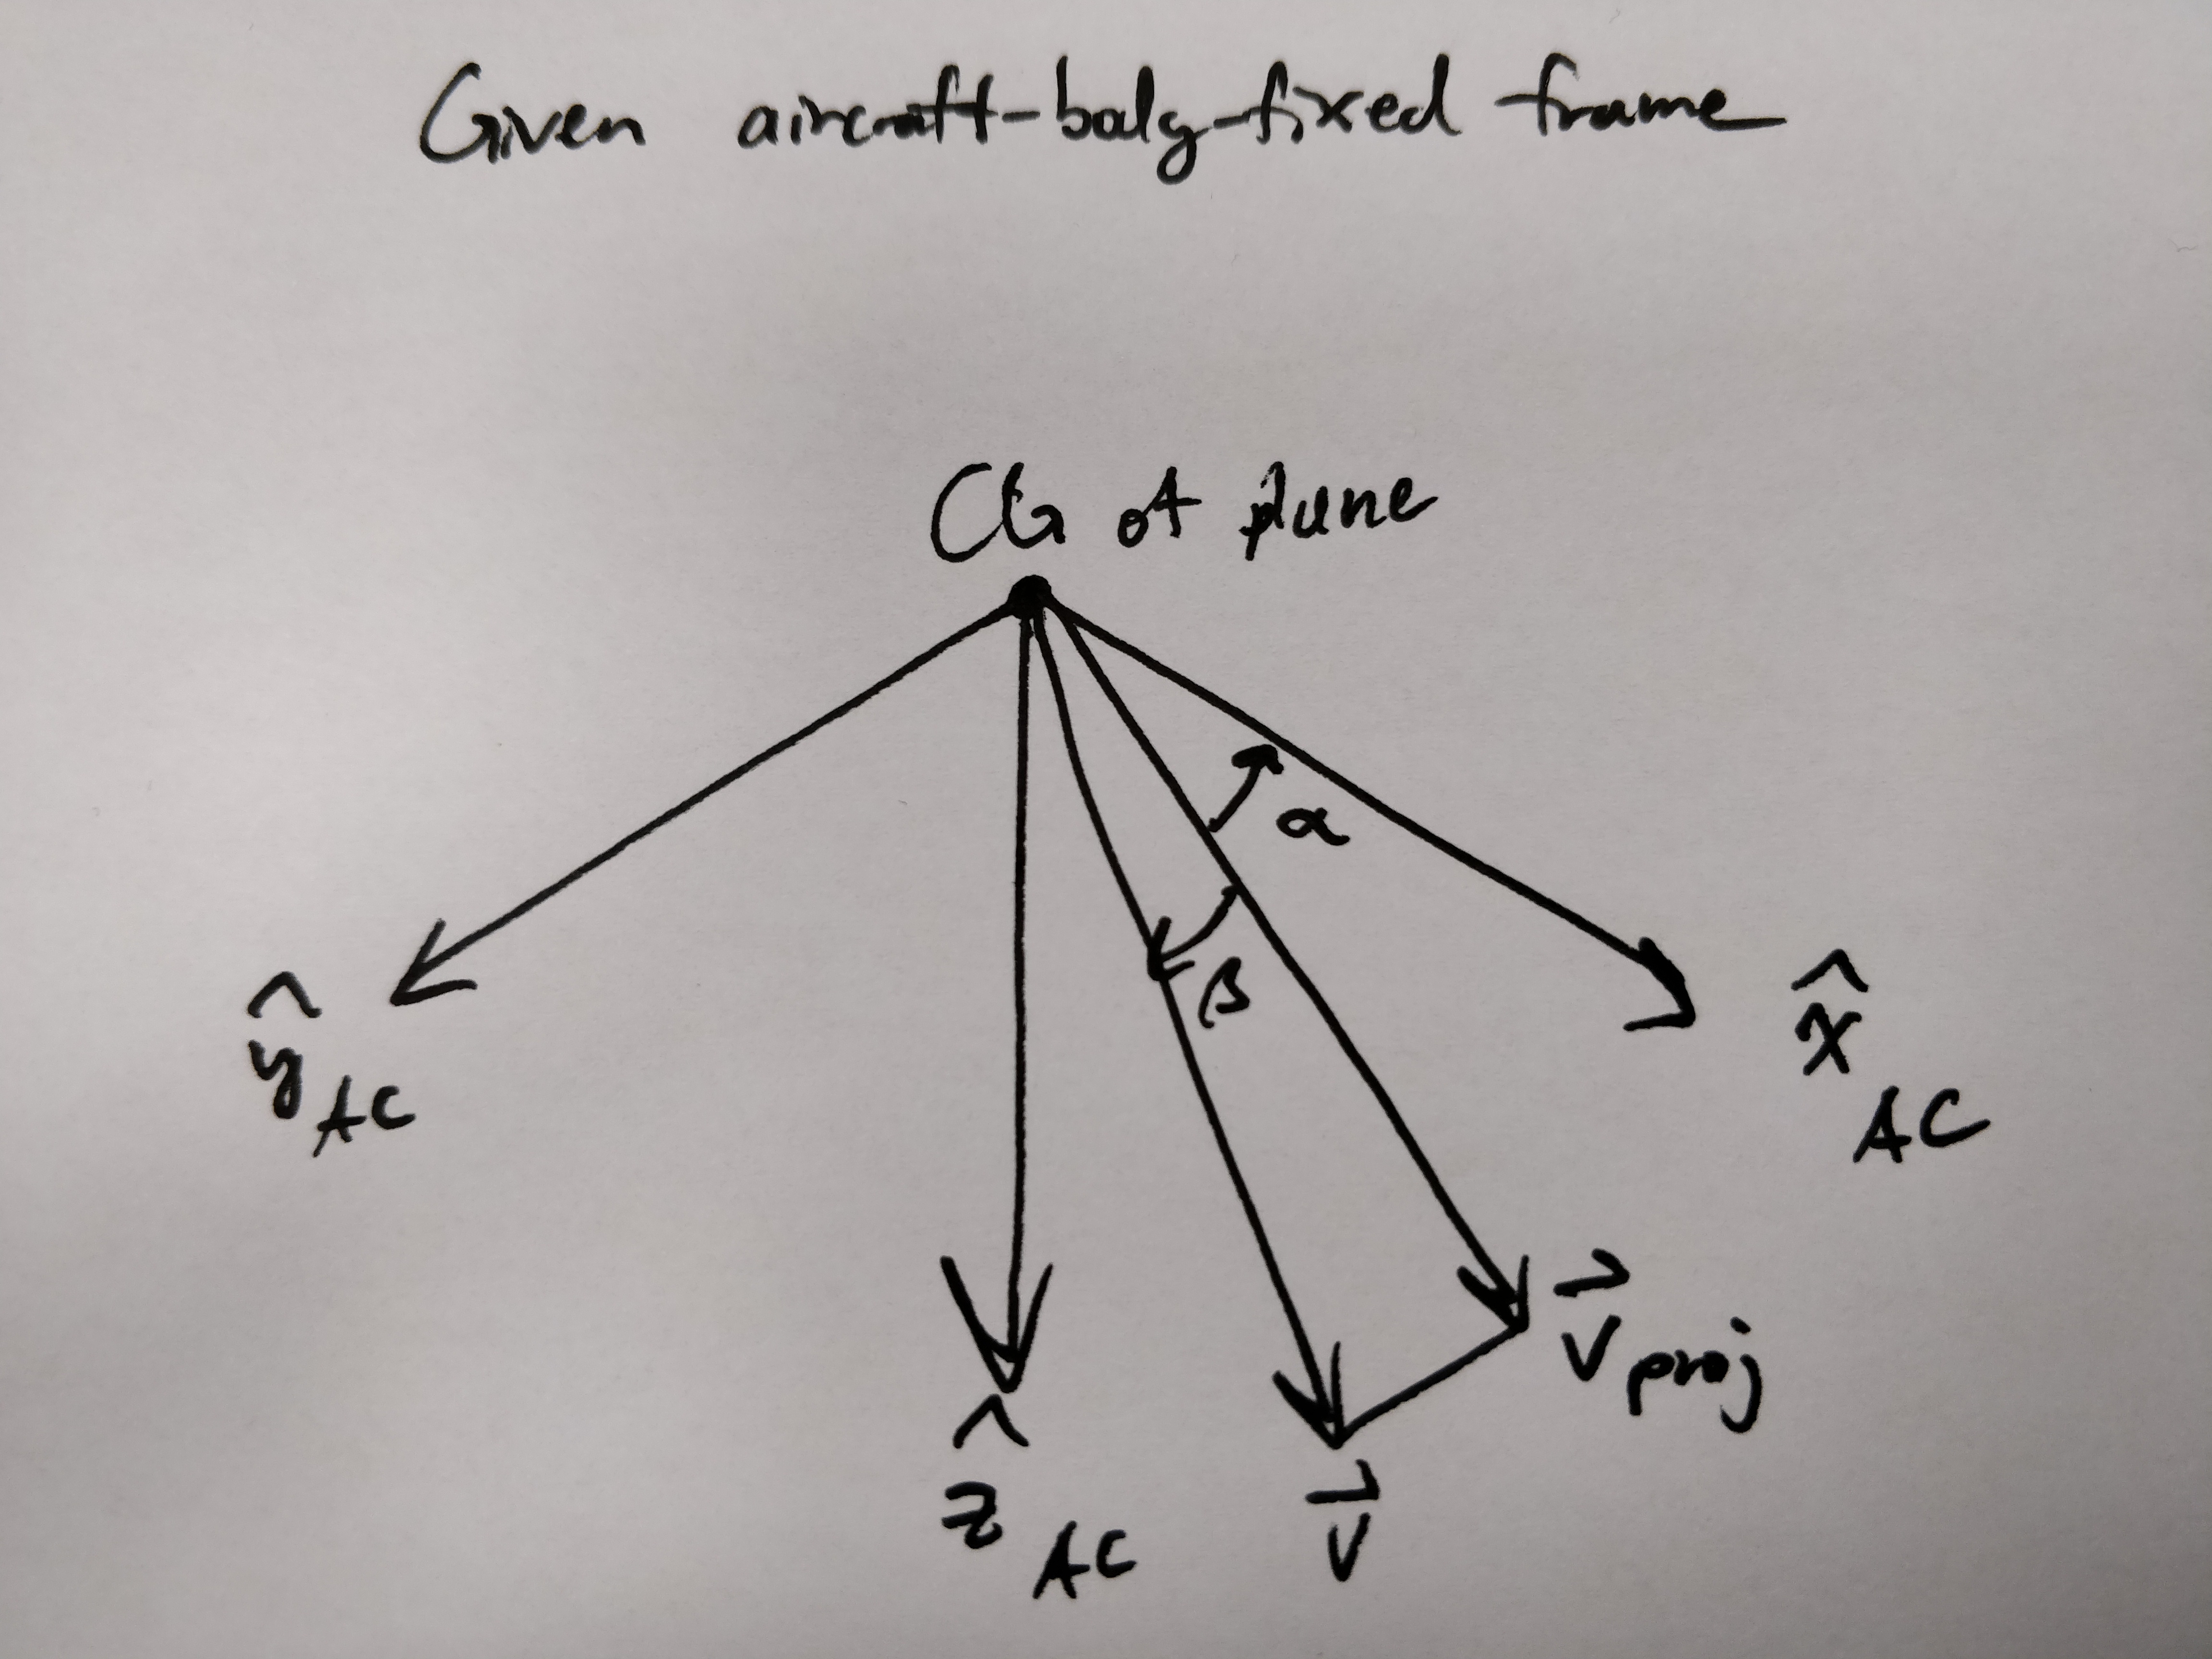 Given aircraft-body-fixed frame
CG of plane
α
β
ŷ AC
x̂ AC
v⃗ proj
ẑ AC
v⃗